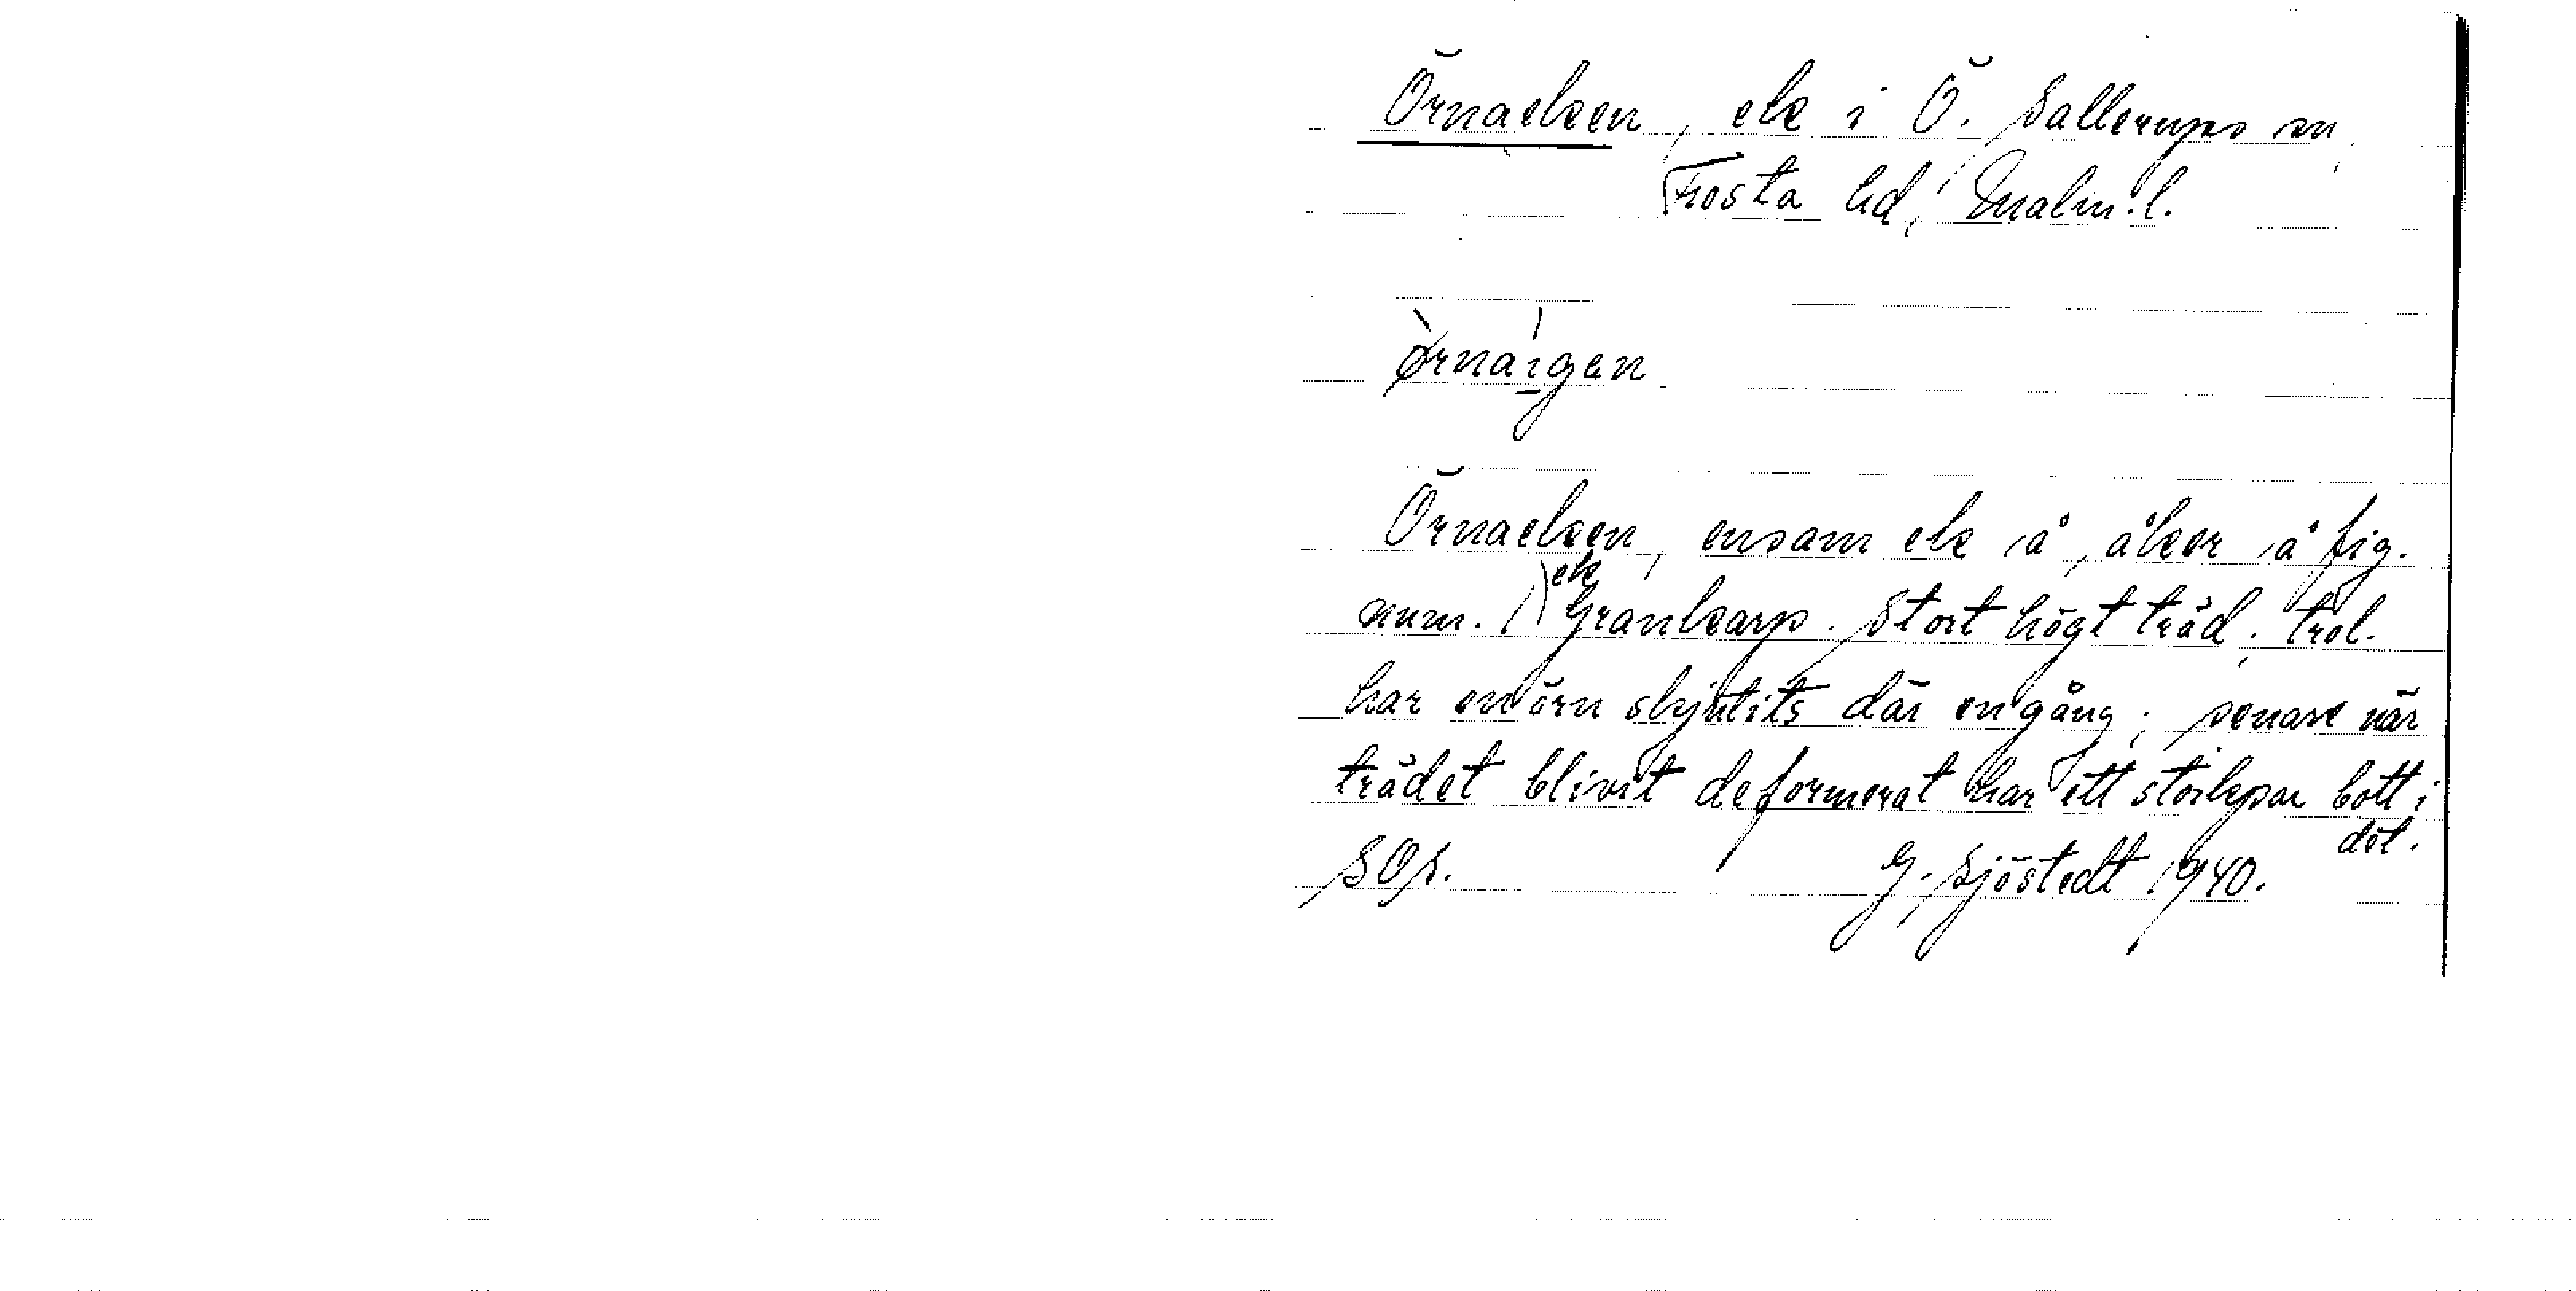 Örnaeken, ek i Ö. Sallerups sn,
Frosta hd, Malm. l.
ø̀rnaígen
Örnaeken, ensam ek å åker å fig.
num. 1) ek Grankarp. Stort högt träd. Trol.
har en örn skjutits där en gång; senare när
trädet blivit deformerat har ett storkpar bott i
det.
SOS. G. Sjöstedt 1940.